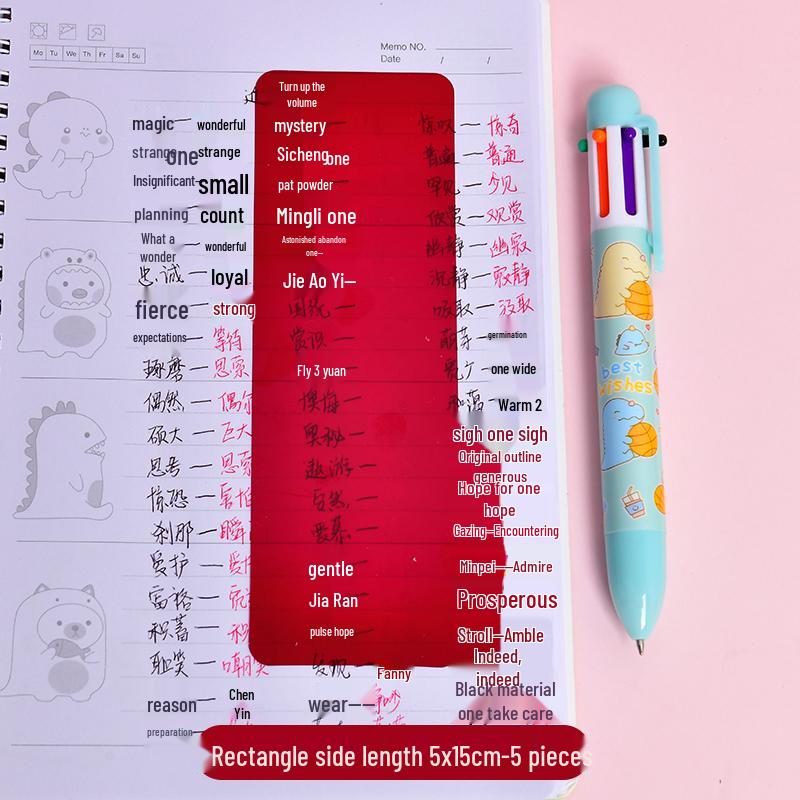 Memo NO.
Mo Tu We Th Fr Sa Su
Date / /
Turn up the
volume
magic wonderful
mystery
惊叹 — 惊奇
strange one strange
Sicheng one
普通 — 普通
Insignificant small
pat powder
罕见 — 少见
planning count
Mingli one
欣赏 — 观赏
What a
wonder
wonderful
Astonished abandon
one—
幽静 — 幽寂
忠诚 — loyal
Jie Ao Yi—
沉静 — 寂静
fierce strong
吸取 — 汲取
expectations — 等待
赏识 —
萌芽 — germination
琢磨 — 思索
Fly 3 yuan
宽广 — one wide
偶然 — 偶尔
懊悔 —
Warm 2
硕大 — 巨大
奥秘 —
sigh one sigh
思考 — 思索
遨游 —
Original outline
generous
惊恐 — 害怕
Hope for one
hope
刹那 — 瞬
爱慕 —
Gazing—Encountering
爱护 — 爱
gentle
Minpei—Admire
富裕 —
Jia Ran
Prosperous
积蓄 — 积
pulse hope
Stroll—Amble
Indeed,
indeed
耻笑 — 嘲笑
发现 —
Fanny
reason Chen
Yin
wear—— 争吵
Black material
one take care
preparation—
Rectangle side length 5x15cm-5 pieces
best
wishes